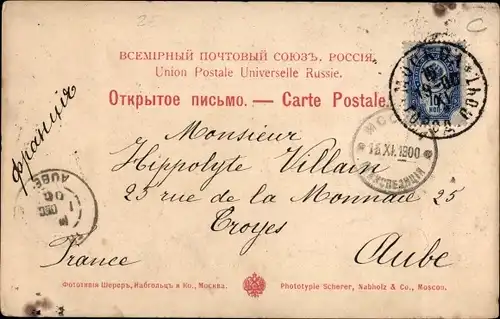 ВСЕМІРНЫЙ ПОЧТОВЫЙ СОЮЗЪ. РОССІЯ.
Union Postale Universelle Russie.
Открытое письмо. — Carte Postale.
Франція
Monsieur
Hippolyte Villain
25 rue de la Monnaie 25
Troyes
France
Aube
МОСКВА
10
КОП
16 XI. 1900
ЭКСПЕДИЦІЯ
AUBE
DEC
00
Фототипія Шереръ, Набгольцъ и Ко., Москва.
Phototypie Scherer, Nabholz & Co., Moscou.